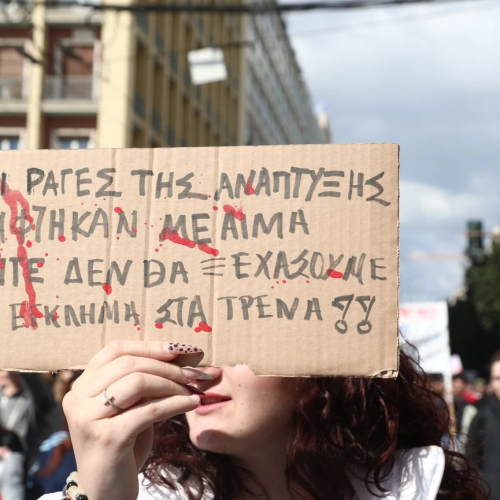 ΡΑΓΕΣ ΤΗΣ ΑΝΑΠΤΥΞΗΣ
ΜΕ ΑΙΜΑ
ΔΕΝ ΘΑ ΞΕΧΑΣΟΥΜΕ
ΕΓΚΛΗΜΑ ΣΤΑ ΤΡΕΝΑ !!